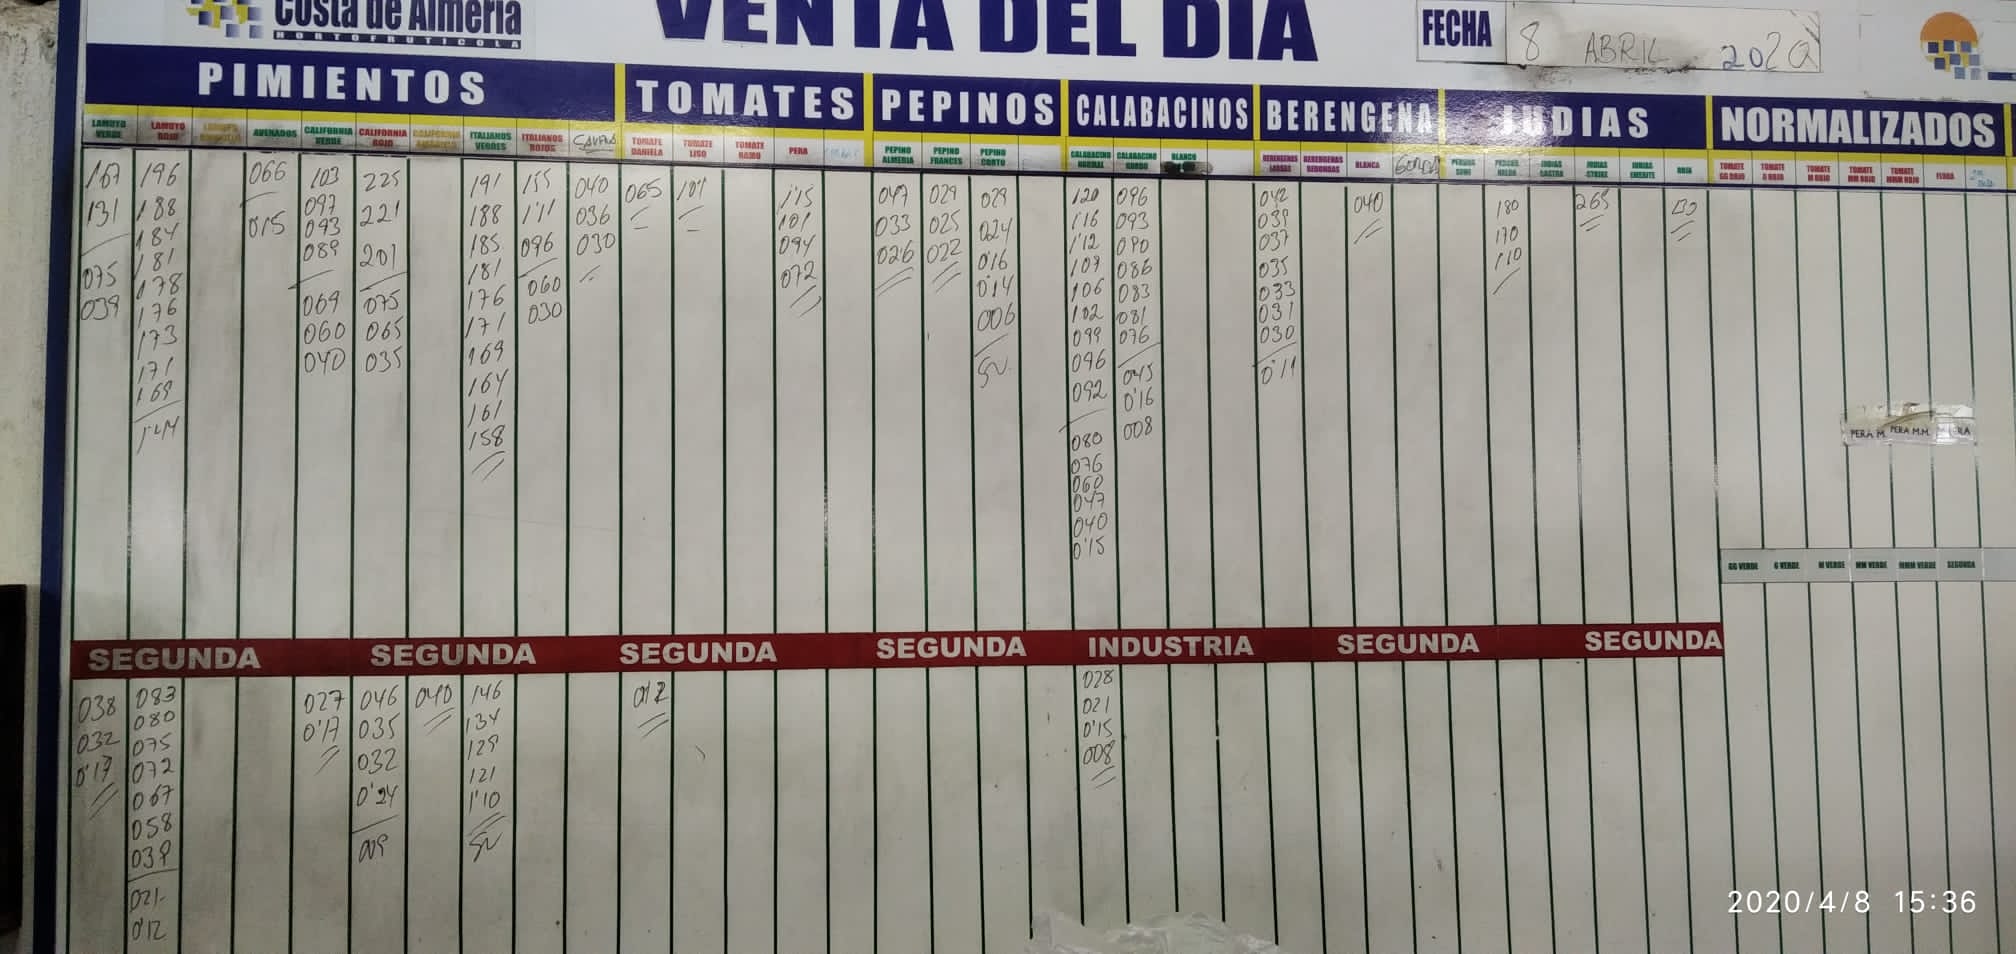 Costa de Almería
HORTOFRUTICOLA
VENTA DEL DIA
FECHA 8 ABRIL 2020
PIMIENTOS TOMATES PEPINOS CALABACINOS BERENGENA JUDIAS NORMALIZADOS
LAMUYO VERDE
LAMUYO ROJO
ASURADOS
CALIFORNIA VERDE
CALIFORNIA ROJO
CALIFORNIA AMARILLO
ITALIANOS VERDES
ITALIANOS ROJOS
TOMATE DANIELA
TOMATE LISO
TOMATE RAMO
PERA
PEPINO ALMERIA
PEPINO FRANCES
PEPINO CORTO
CALABACINO NORMAL
CALABACINO GORDO
BLANCO
BERENGENAS LARGAS
BERENGENAS REDONDAS
BLANCA
GORDA
JUDIAS STRIKE
JUDIAS EMERITE
ROJA
TOMATE GG ROJO
TOMATE G ROJO
TOMATE M ROJO
TOMATE MM ROJO
TOMATE MMM ROJO
167
131
075
039
196
188
184
181
178
176
173
171
169
066
0'15
103
097
093
089
069
060
040
225
221
201
075
065
035
191
188
185
181
176
171
169
164
161
158
155
1'11
096
060
030
040
036
030
065
107
1'15
101
094
072
047
033
026
029
025
022
029
024
0'16
0'14
006
SV.
120
1'16
1'12
107
106
102
099
096
092
080
076
060
047
040
0'15
096
093
090
086
083
081
076
045
0'16
008
042
039
037
035
033
031
030
0'11
040
180
170
110
265
PERA M. PERA M.M.
GG VERDE G VERDE M VERDE MM VERDE MMM VERDE SEGUNDA
SEGUNDA SEGUNDA SEGUNDA SEGUNDA INDUSTRIA SEGUNDA SEGUNDA
038
032
0'17
083
080
075
072
067
058
039
021
0'12
027
0'17
046
035
032
0'24
009
040
146
134
129
121
1'10
SV
012
028
021
0'15
008
2020/4/8 15:36